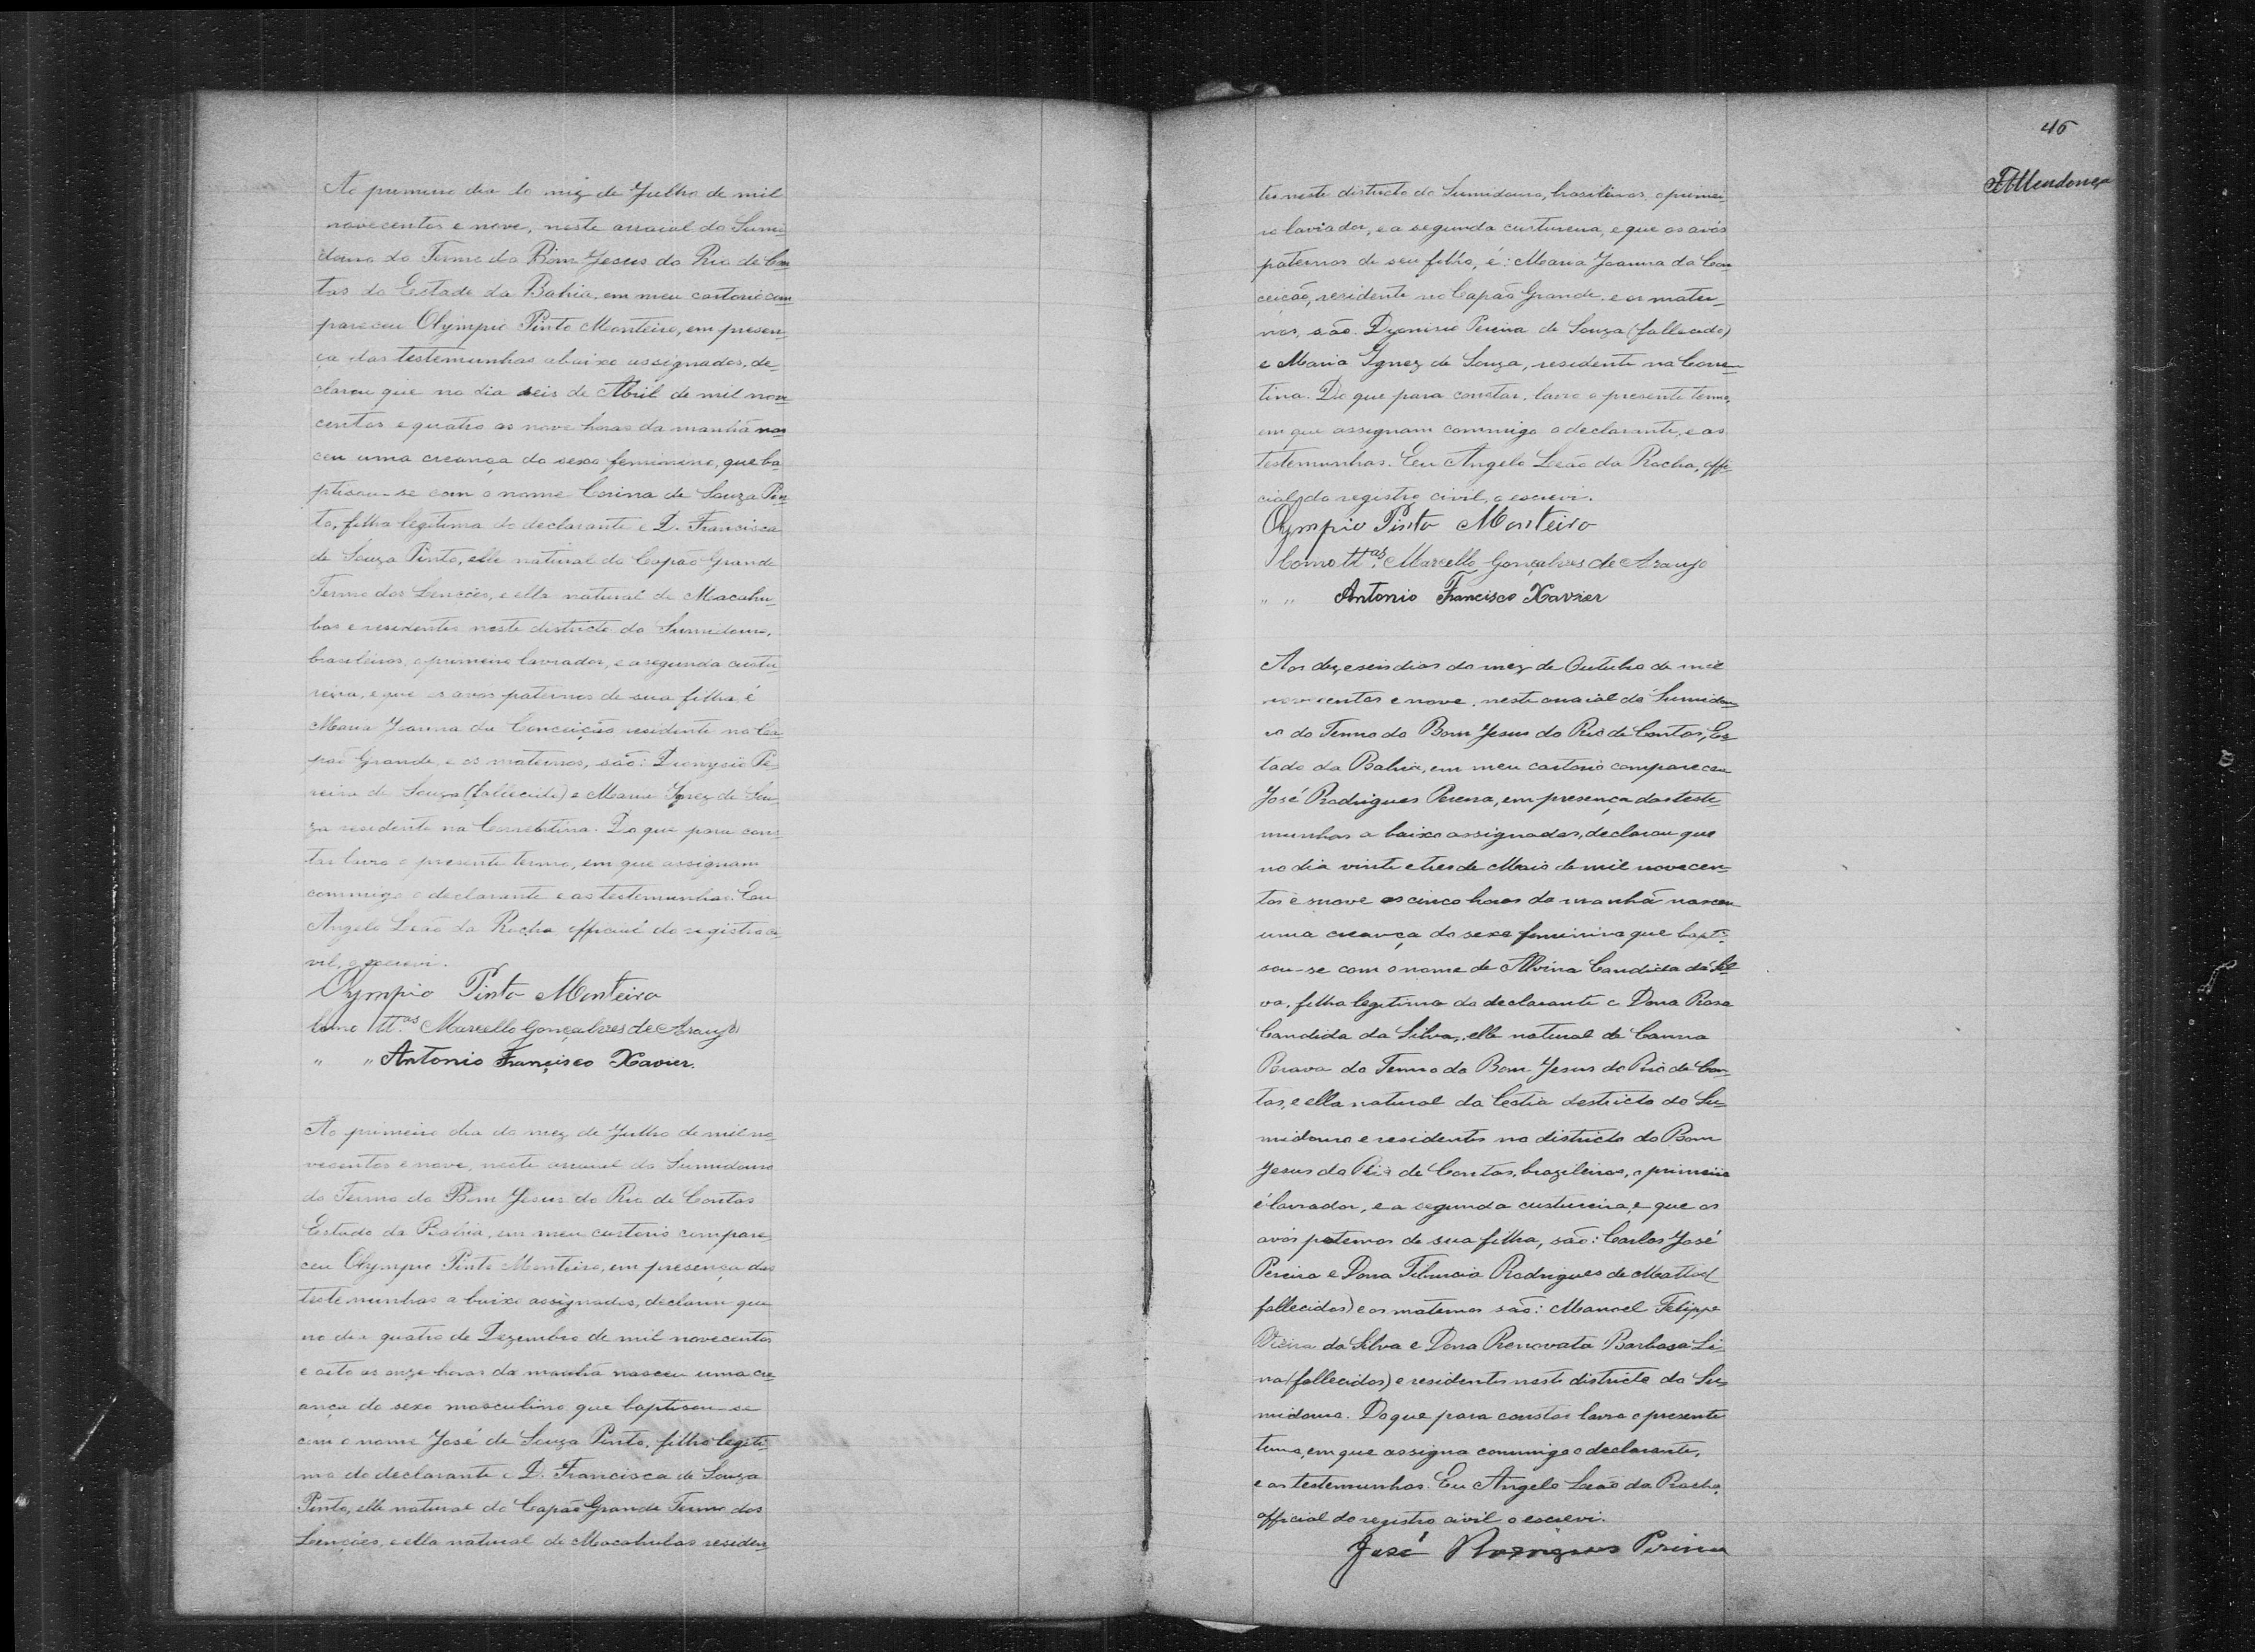 Ao primeiro dia do mez de Julho de mil
novecentos e nove, neste arraial do Sumi-
douro do Termo do Bom Jesus do Rio de Con-
tas do Estado da Bahia, em meu cartorio com-
pareceu Olympio Pinto Monteiro, em presen-
ça das testemunhas abaixo assignadas, de-
clarou que no dia seis de Abril de mil nove-
centos e quatro as nove horas da manhã nas-
ceu uma creança do sexo feminino, que ba-
ptisou-se com o nome Corina de Souza Pin-
to, filha legitima do declarante e D. Francisca
de Souza Pinto, elle natural do Capão Grande
Termo dos Lençóes, e ella natural de Macahu-
bas e residentes neste districto do Sumidouro,
brasileiros, o primeiro lavrador, e a segunda custu-
reira, e que os avós paternos de sua filha, é
Maria Joanna da Conceição residente no Ca-
pão Grande, e os maternos, são: Dionysio Pe-
reira de Souza (fallecido) e Maria Ignez de Sou-
za residente na Correntina. Do que para cons-
tar lavro o presente termo, em que assignam
commigo o declarante e as testemunhas. Eu
Angelo Leão da Rocha official do registro ci-
vil, o escrevi.
Olympio Pinto Monteiro
Como Ttas Marcello Gonçalves de Araujo
" " Antonio Francisco Xavier.
Ao primeiro dia do mez de Julho de mil no-
vecentos e nove, neste arraial do Sumidouro
do Termo do Bom Jesus do Rio de Contas
Estado da Bahia, em meu cartorio compare-
ceu Olympio Pinto Monteiro, em presença das
testemunhas a baixo assignadas, declarou que
no dia quatro de Dezembro de mil novecentos
e oito as onze horas da manhã nasceu uma cre-
ança do sexo masculino que baptisou-se
com o nome José de Souza Pinto, filho legiti-
mo do declarante e D. Francisca de Souza
Pinto, elle natural do Capão Grande Termo dos
Lençóes, e ella natural de Macahubas residen-
46
tes neste districto do Sumidouro, brasileiros, o primei-
ro lavrador, e a segunda custureira, e que os avós
paternos de seu filho, é: Maria Joanna da Con-
ceicão, residente no Capão Grande, e os mater-
nos, são. Dyonisio Pereira de Souza (fallecido)
e Maria Ignez de Souza, residente na Corren-
tina. Do que para constar, lavro o presente termo,
em que assignam commigo o declarante, e as
testemunhas. Eu Angelo Leão da Rocha, offi-
cial do registro civil, o escrevi.
Olympio Pinto Monteiro
Como Ttas. Marcello Gonçalves de Araujo
" " Antonio Francisco Xavier
Aos dezeseis dias do mez de Outubro de mil
novecentos e nove, neste arraial do Sumidou-
ro do Termo do Bom Jesus do Rio de Contas, Es-
tado da Bahia, em meu cartorio compareceu
José Rodrigues Pereira, em presença das teste-
munhas a baixo assignadas, declarou que
no dia vinte e tres de Maio de mil novecen-
tos e nove as cinco horas da manhã nasceu
uma creança do sexo feminino que bapti-
sou-se com o nome de Alvina Candida da Sil-
va, filha legitima do declarante e Dona Rosa
Candida da Silva, elle natural de Canna
Brava do Termo do Bom Jesus do Rio de Con-
tas, e ella natural da destricto do Su-
midouro e residentes no districto do Bom
Jesus do Rio de Contas, brazileiros, o primeiro
é lavrador, e a segunda custureira, e que os
avós paternos de sua filha, são: Carlos José
Pereira e Dona Tiburcia Rodrigues de Mattos (
fallecidos) e os maternos são: Manoel Felippe
da Silva e Dona Renovata Barbosa Li-
na (fallecidos) e residentes neste districto do Su-
midouro. Do que para constar lavro o presente
termo, em que assigna commigo o declarante,
e as testemunhas. Eu Angelo Leão da Rocha,
official do registro civil o escrevi.
José Rodrigues Pereira